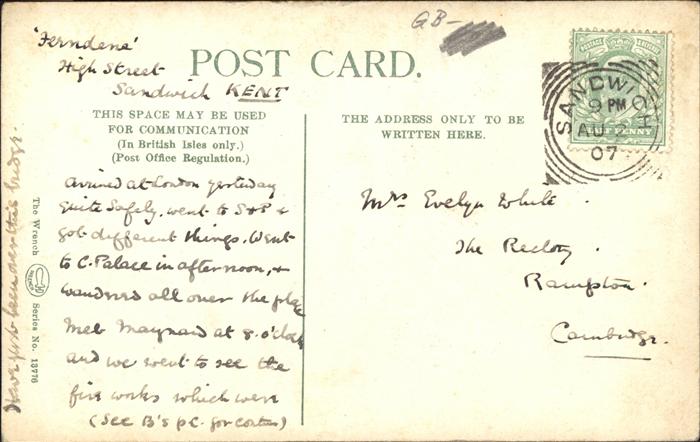 'Ferndene'
High Street
Sandwich KENT
GB-
POST CARD.
THIS SPACE MAY BE USED
FOR COMMUNICATION
(In British Isles only.)
(Post Office Regulation.)
THE ADDRESS ONLY TO BE
WRITTEN HERE.
POSTAGE REVENUE
HALF PENNY
SANDWICH
9 PM
AU
07
Arrived at London yesterday
quite safely. went to S&P &
got different things. Went
to C. Palace in afternoon, &
wandered all over the place
Met Maynard at 8. o'clock
and we went to see the
fire works which were
(See B's p.c. for contin)
Have just been over this bridge.
The Wrench Series No. 13776
Mrs Evelyn White.
The Rectory.
Rampton.
Cambridge.